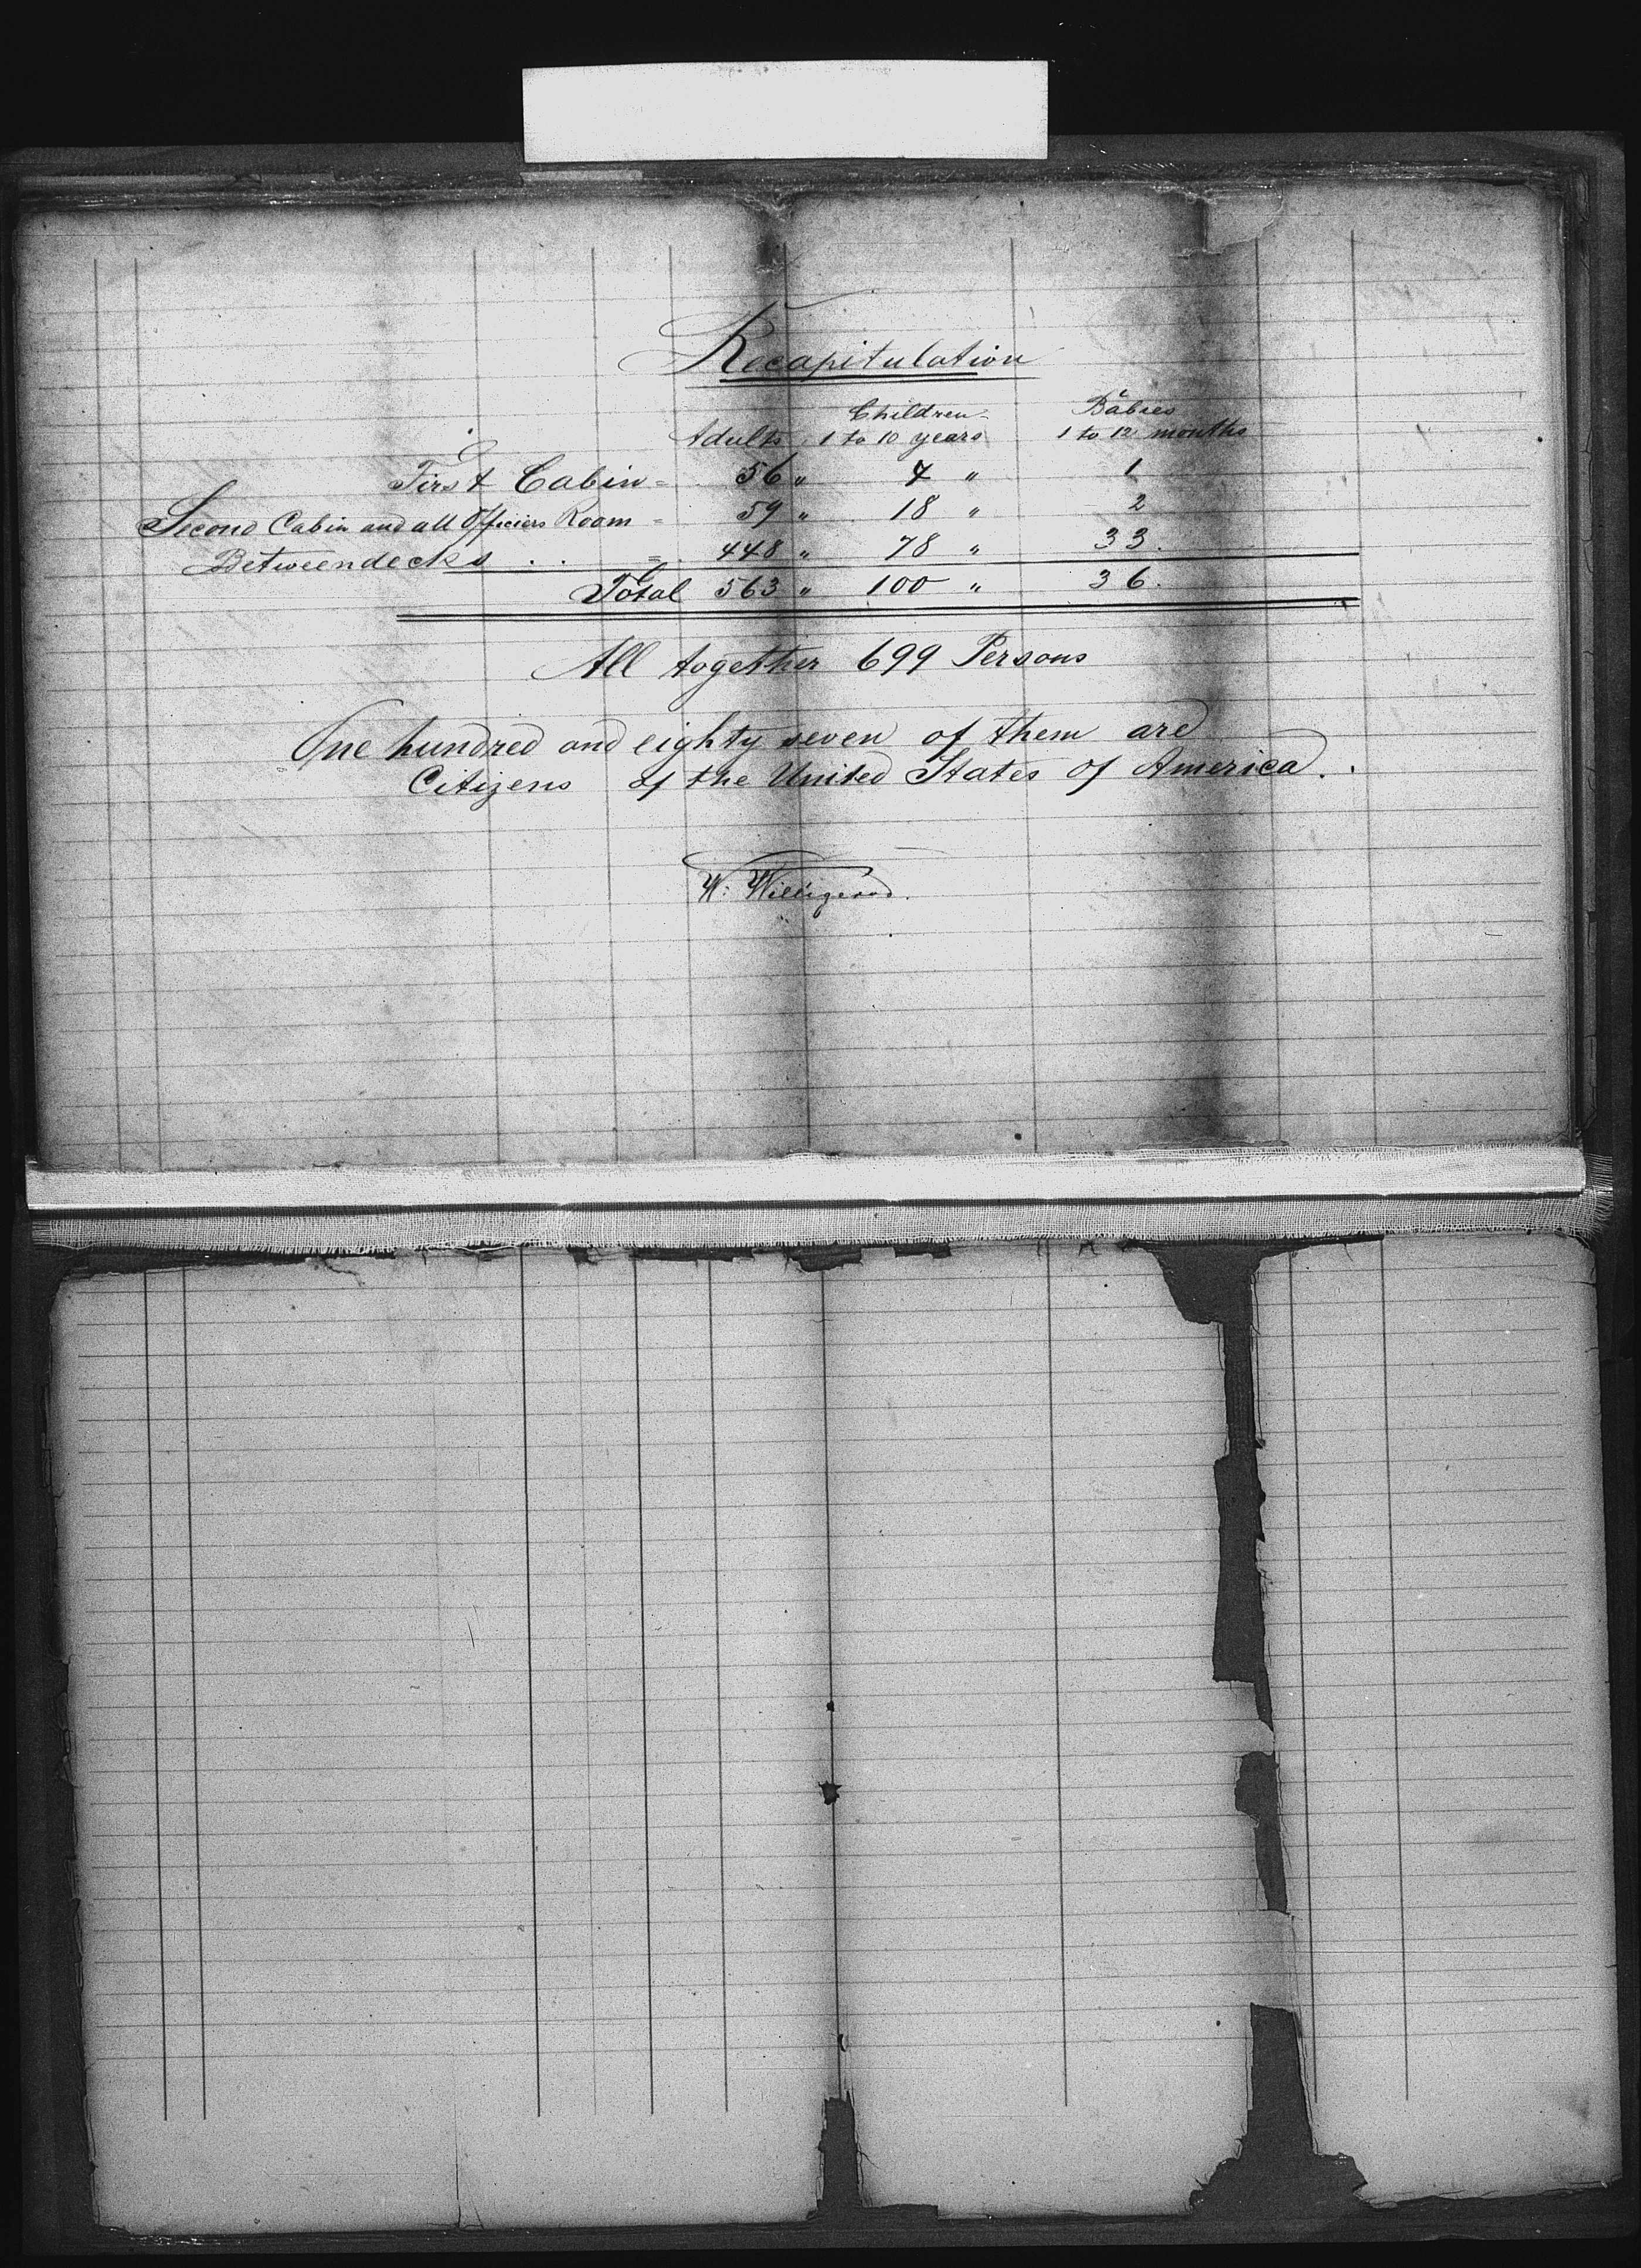 Recapitulation
Children Babies
Adults 1 to 10 years 1 to 12 months
First Cabin = 56 " 7 " 1
Second Cabin and all Officiers Room = 59 " 18 " 2
Betweendecks . . = 448 " 78 " 33.
Total 563 " 100 " 36.
All together 699 Persons
One hundred and eighty seven of them are
Citizens of the United States of America.
W. Willigerod.